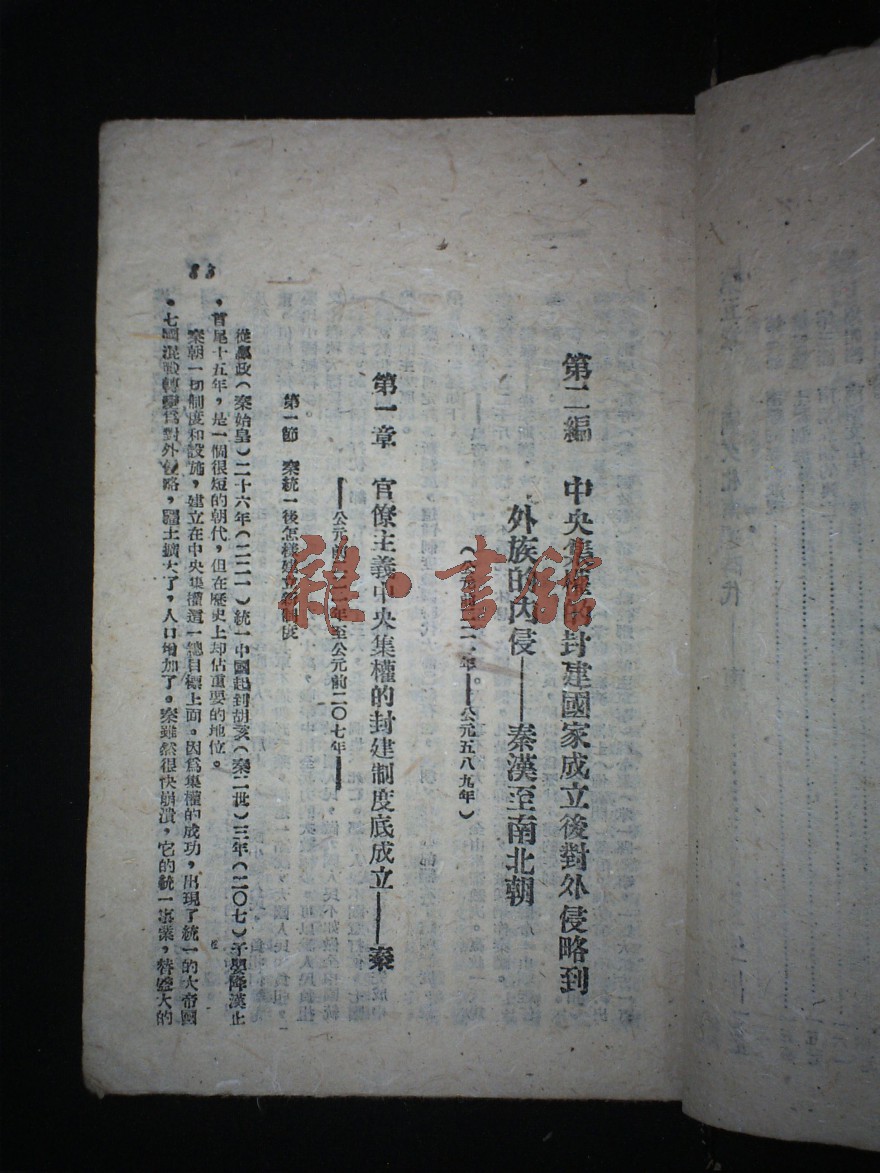 第二編　中央集權的封建國家成立後對外侵略到
外族的內侵——秦漢至南北朝
（公元前二二一年——公元五八九年）
第一章　官僚主義中央集權的封建制度底成立——秦
——公元前二二一年至公元前二〇七年——
第一節　秦統一後怎樣建立新制度
從嬴政（秦始皇）二十六年（二二一）統一中國起到胡亥（秦二世）三年（二〇七）子嬰降漢止
，首尾十五年，是一個很短的朝代，但在歷史上却佔重要的地位。
秦朝一切制度和設施，建立在中央集權這一總目標上面。因爲集權的成功，出現了統一的大帝國
，七國混戰轉變爲對外侵略，疆土擴大了，人口增加了。秦雖然很快崩潰，它的統一事業，替盛大的
83
雜·書館